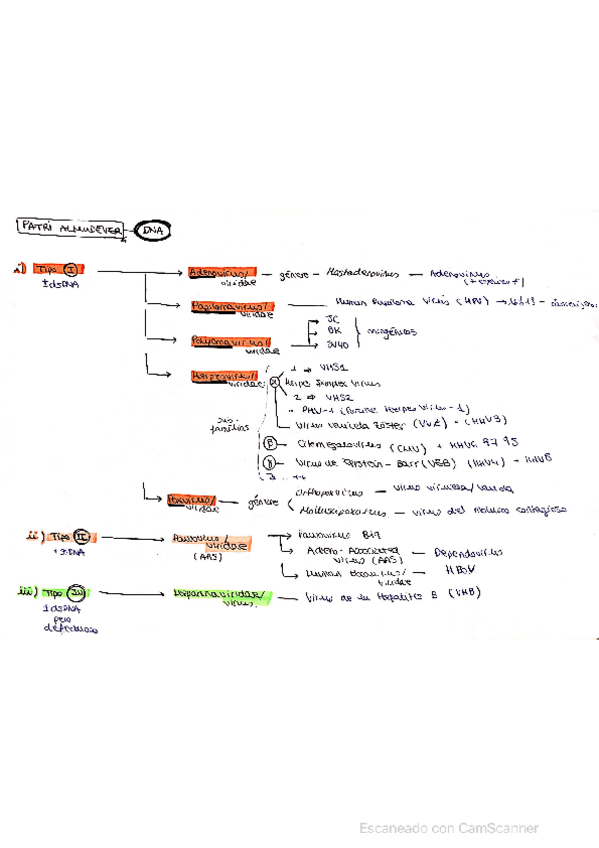 PATRI ALMUDEVER DNA
i) Tipo I
± dsDNA
Adenovirus/
viridae
género - Mastadenovirus - Adenovirus
Papilomavirus/
viridae
Human Papiloma Virus (HPV) →
Polyomavirus/
viridae
JC
BK
SV40
oncogénicos
Herpesvirus/
viridae
sub-
familias
α
1 → VHS1
Herpes Simplex Virus
2 → VHS2
PHV-1 (Porcine Herpes Virus-1)
Virus Varicela Zóster (VVZ) - (HHV3)
β - Citomegalovirus (CMV) + HHV6 y 7
γ - Virus de Epstein-Barr (VEB) (HHV4) - HHV8
Poxvirus/
viridae
género
Orthopoxvirus - virus viruela/vacuna
Molluscipoxvirus - virus del molusco contagioso
ii) Tipo II
+ssDNA
Parvovirus/
viridae
(AAS)
Parvovirus B19
Adeno-Associated
Virus (AAS)
Dependovirus
Human Bocavirus/
viridae
HBOV
iii) Tipo
± dsDNA
pero
defectuoso
Hepadnaviridae/
virus
Virus de la Hepatitis B (VHB)
Escaneado con CamScanner